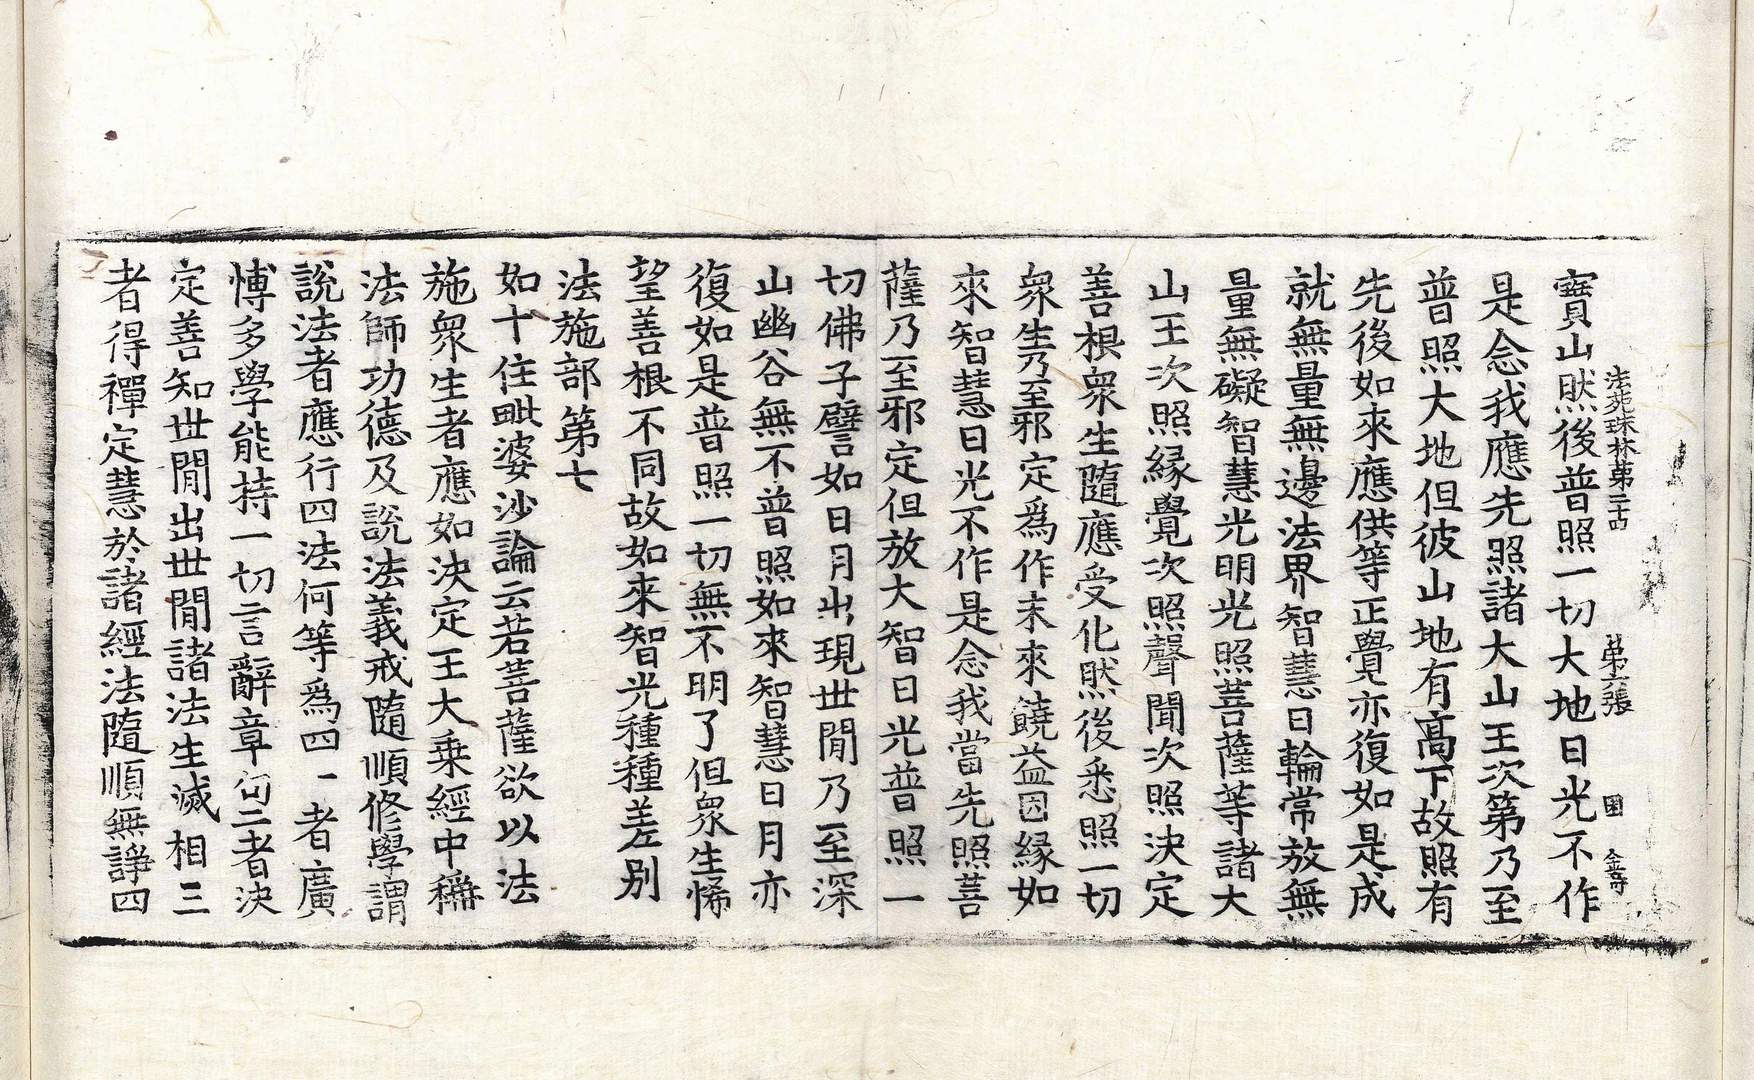 法苑珠林第二十四 第六張 困 金守
寶山然後普照一切大地日光不作
是念我應先照諸大山王次第乃至
普照大地但彼山地有高下故照有
先後如來應供等正覺亦復如是成
就無量無邊法界智慧日輪常放無
量無礙智慧光明光照菩薩等諸大
山王次照緣覺次照聲聞次照決定
善根衆生隨應受化然後悉照一切
衆生乃至邪定爲作未來饒益因緣如
來智慧日光不作是念我當先照菩
薩乃至邪定但放大智日光普照一
切佛子譬如日月出現世閒乃至深
山幽谷無不普照如來智慧日月亦
復如是普照一切無不明了但衆生悕
望善根不同故如來智光種種差别
法施部第七
如十住毗婆沙論云若菩薩欲以法
施衆生者應如決定王大乘經中稱
法師功德及說法義戒隨順修學謂
說法者應行四法何等爲四一者廣
博多學能持一切言辭章句二者決
定善知世閒出世閒諸法生滅相三
者得禪定慧於諸經法隨順無諍四